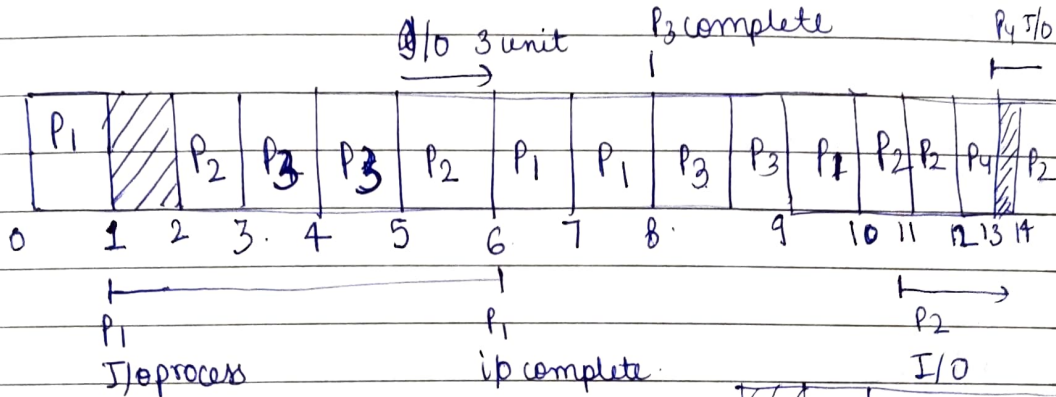 I/O 3 unit P3 complete P4 I/O
P1 P2 P3 P3 P2 P1 P1 P3 P3 P1 P2 P2 P4 P2
0 1 2 3. 4 5 6 7 8. 9 10 11 12 13 14
P1 P1 P2
I/O process i/p complete. I/O